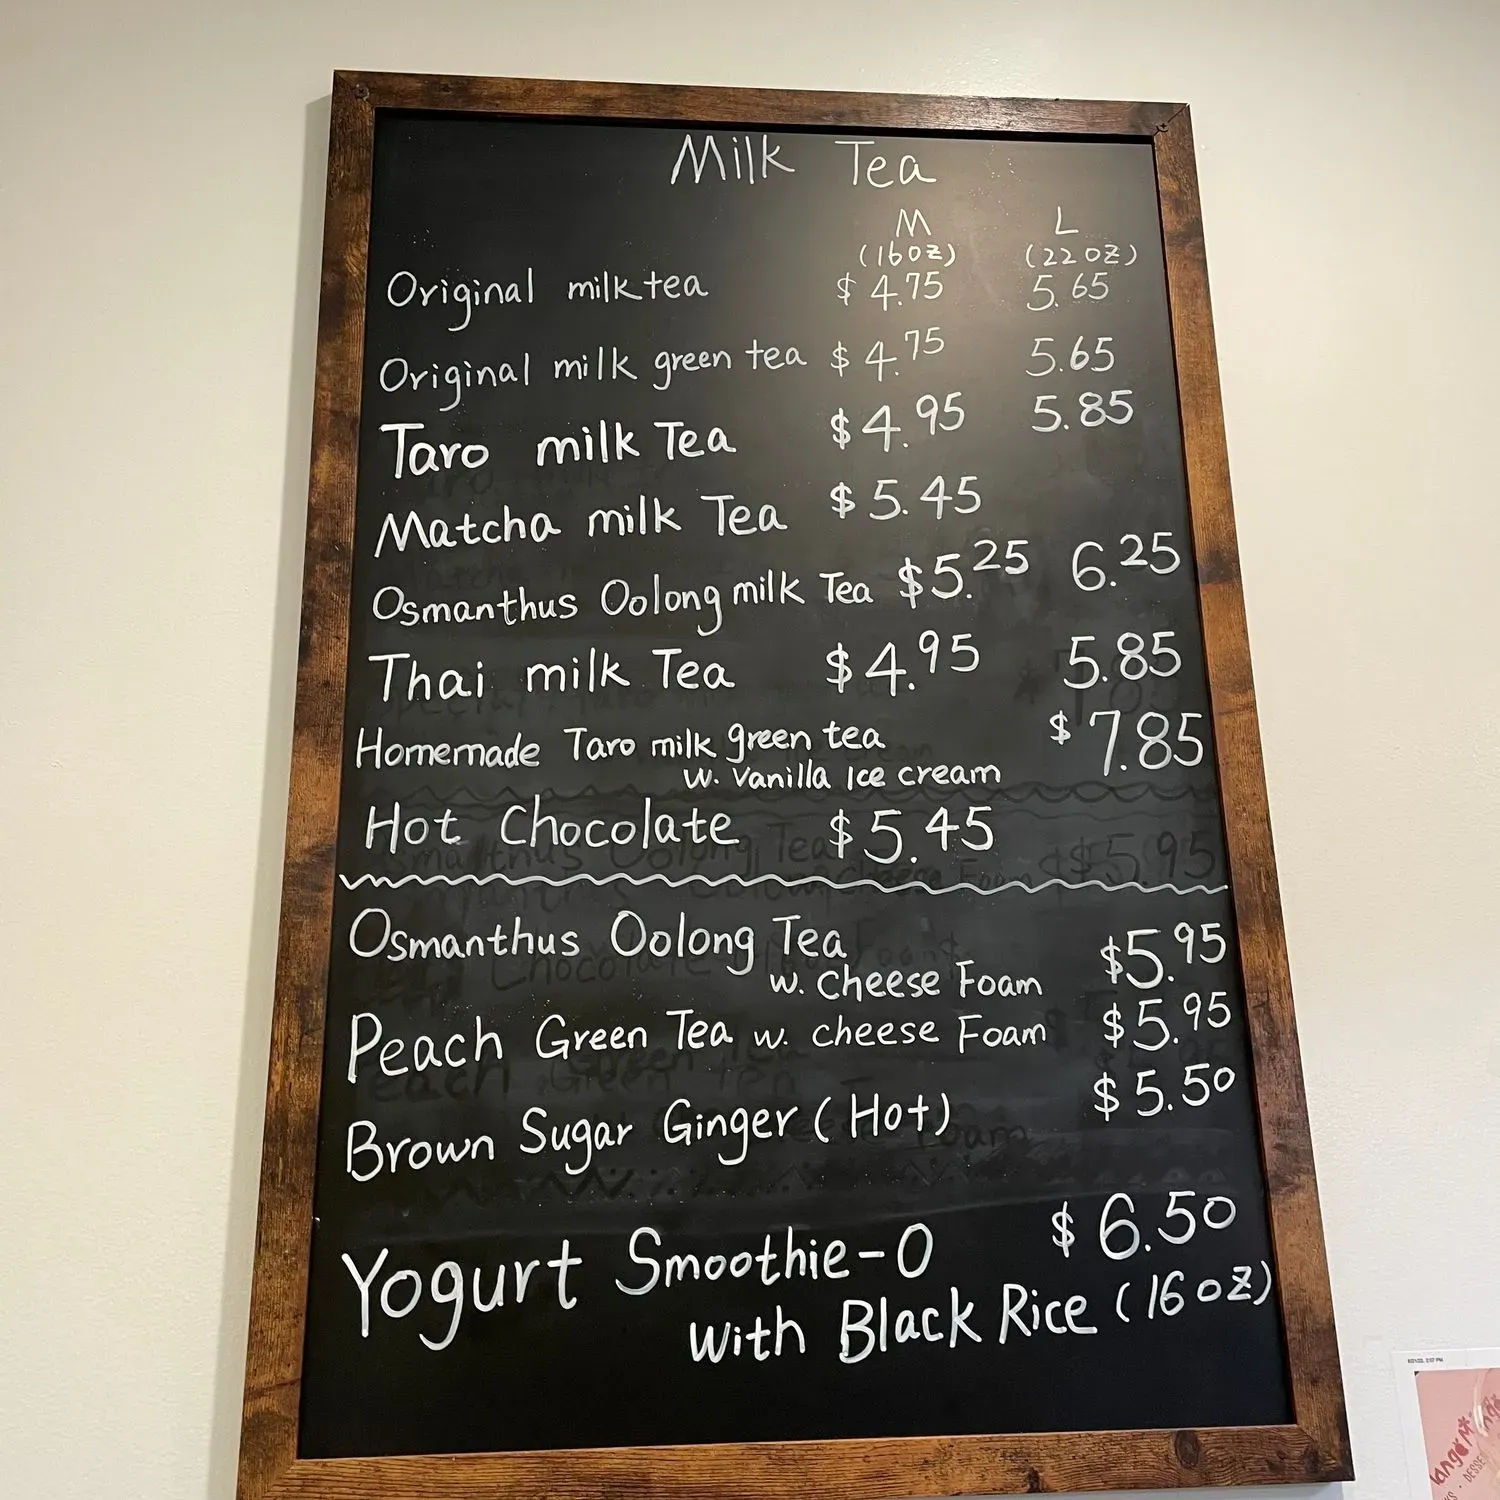 Milk Tea
M L
(16oz) (22oz)
Original milk tea $4.75 5.65
Original milk green tea $4.75 5.65
Taro milk Tea $4.95 5.85
Matcha milk Tea $5.45
Osmanthus Oolong milk Tea $5.25 6.25
Thai milk Tea $4.95 5.85
Homemade Taro milk green tea $7.85
w. Vanilla Ice cream
Hot Chocolate $5.45
Osmanthus Oolong Tea $5.95
w. Cheese Foam
Peach Green Tea w. cheese Foam $5.95
Brown Sugar Ginger (Hot) $5.50
Yogurt Smoothie-O $6.50
with Black Rice (16oz)